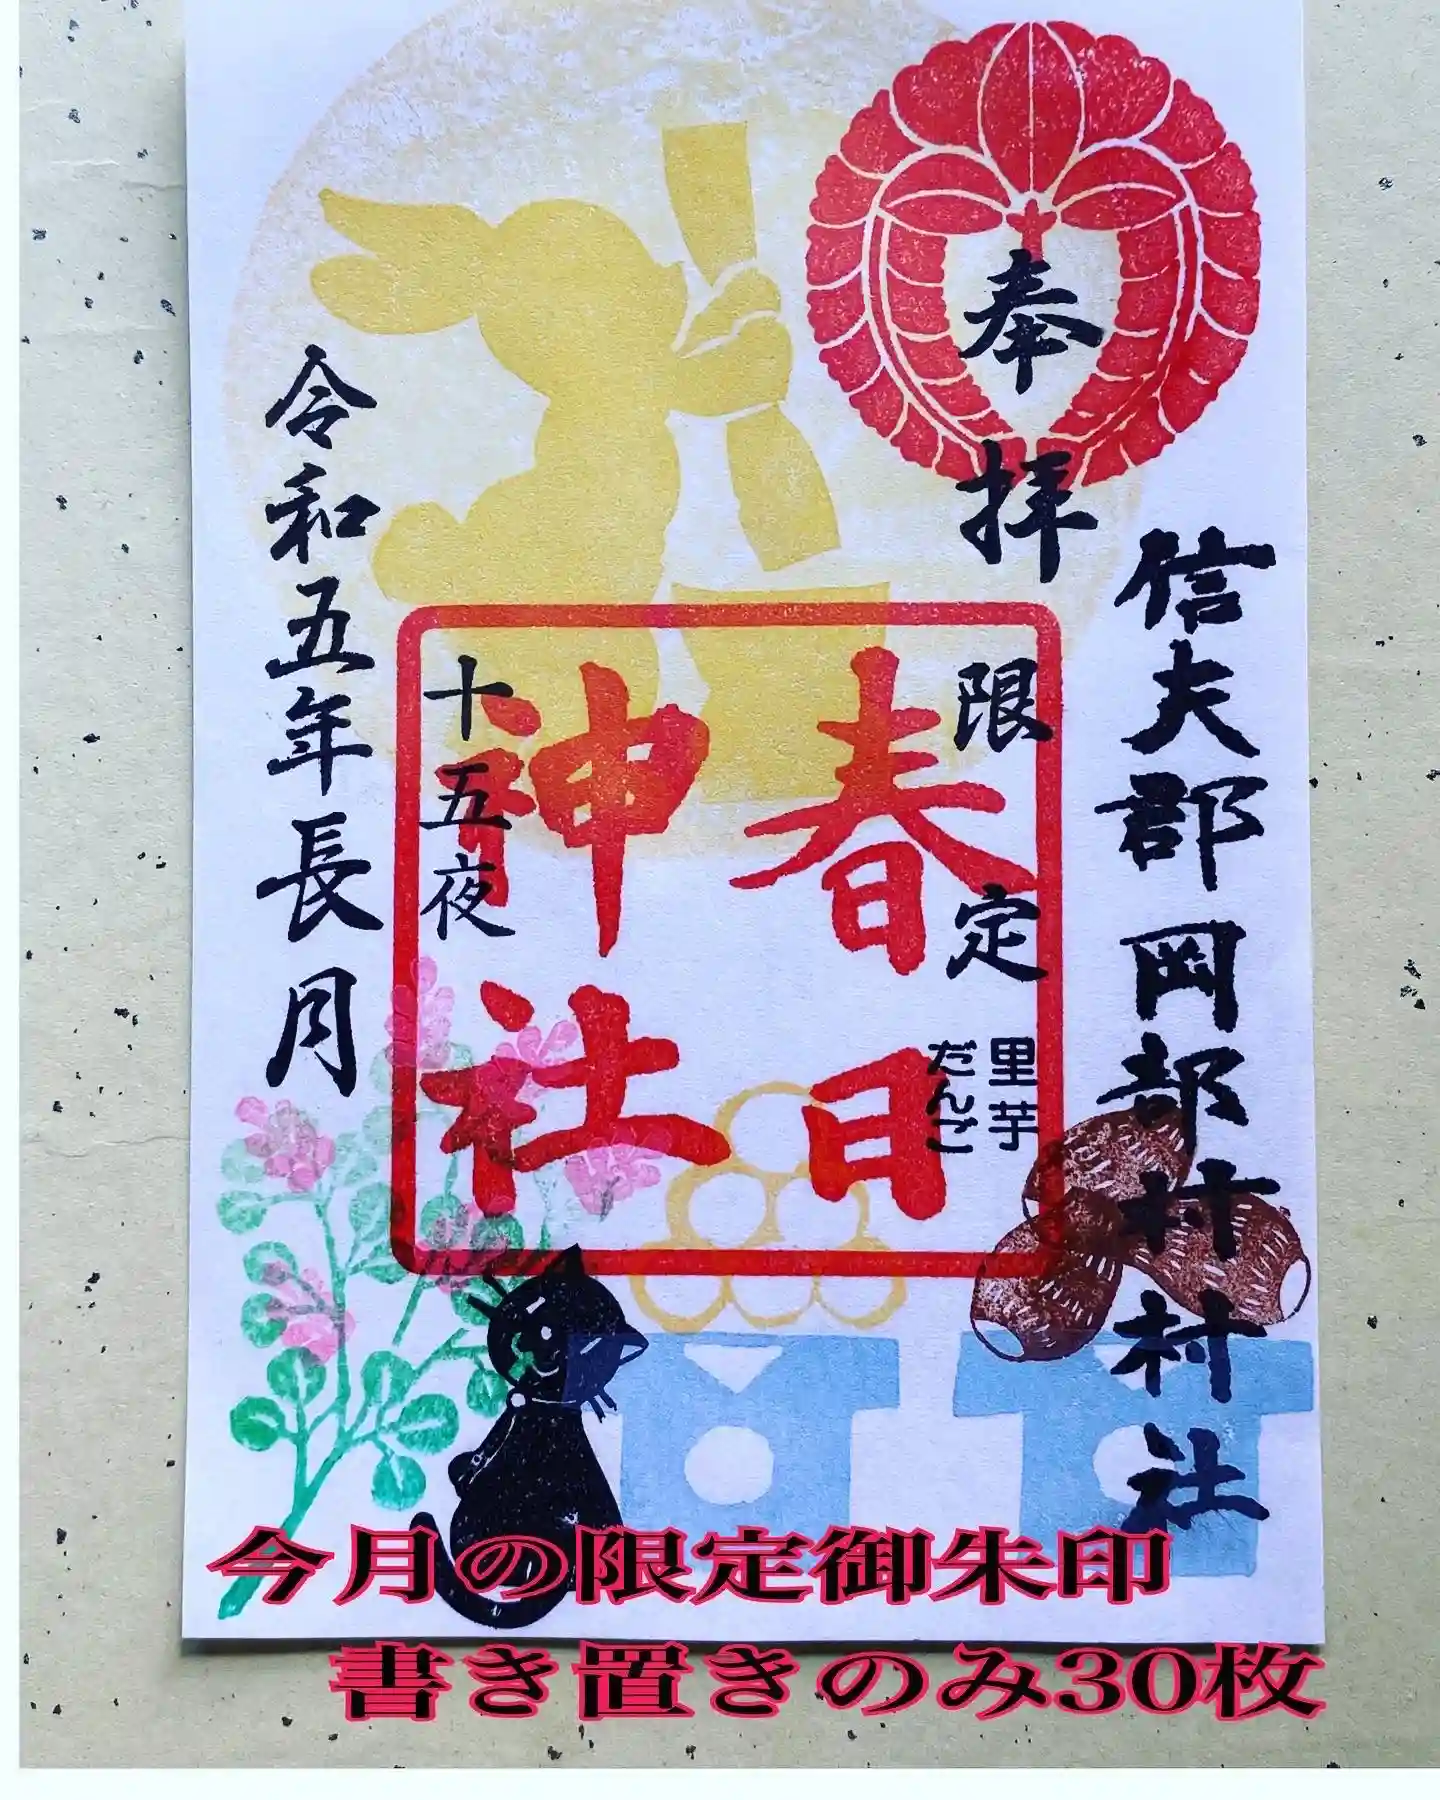 奉拝
信夫郡岡部村村社
限定
里芋
だんご
春日
神社
十五夜
令和五年長月
今月の限定御朱印
書き置きのみ30枚